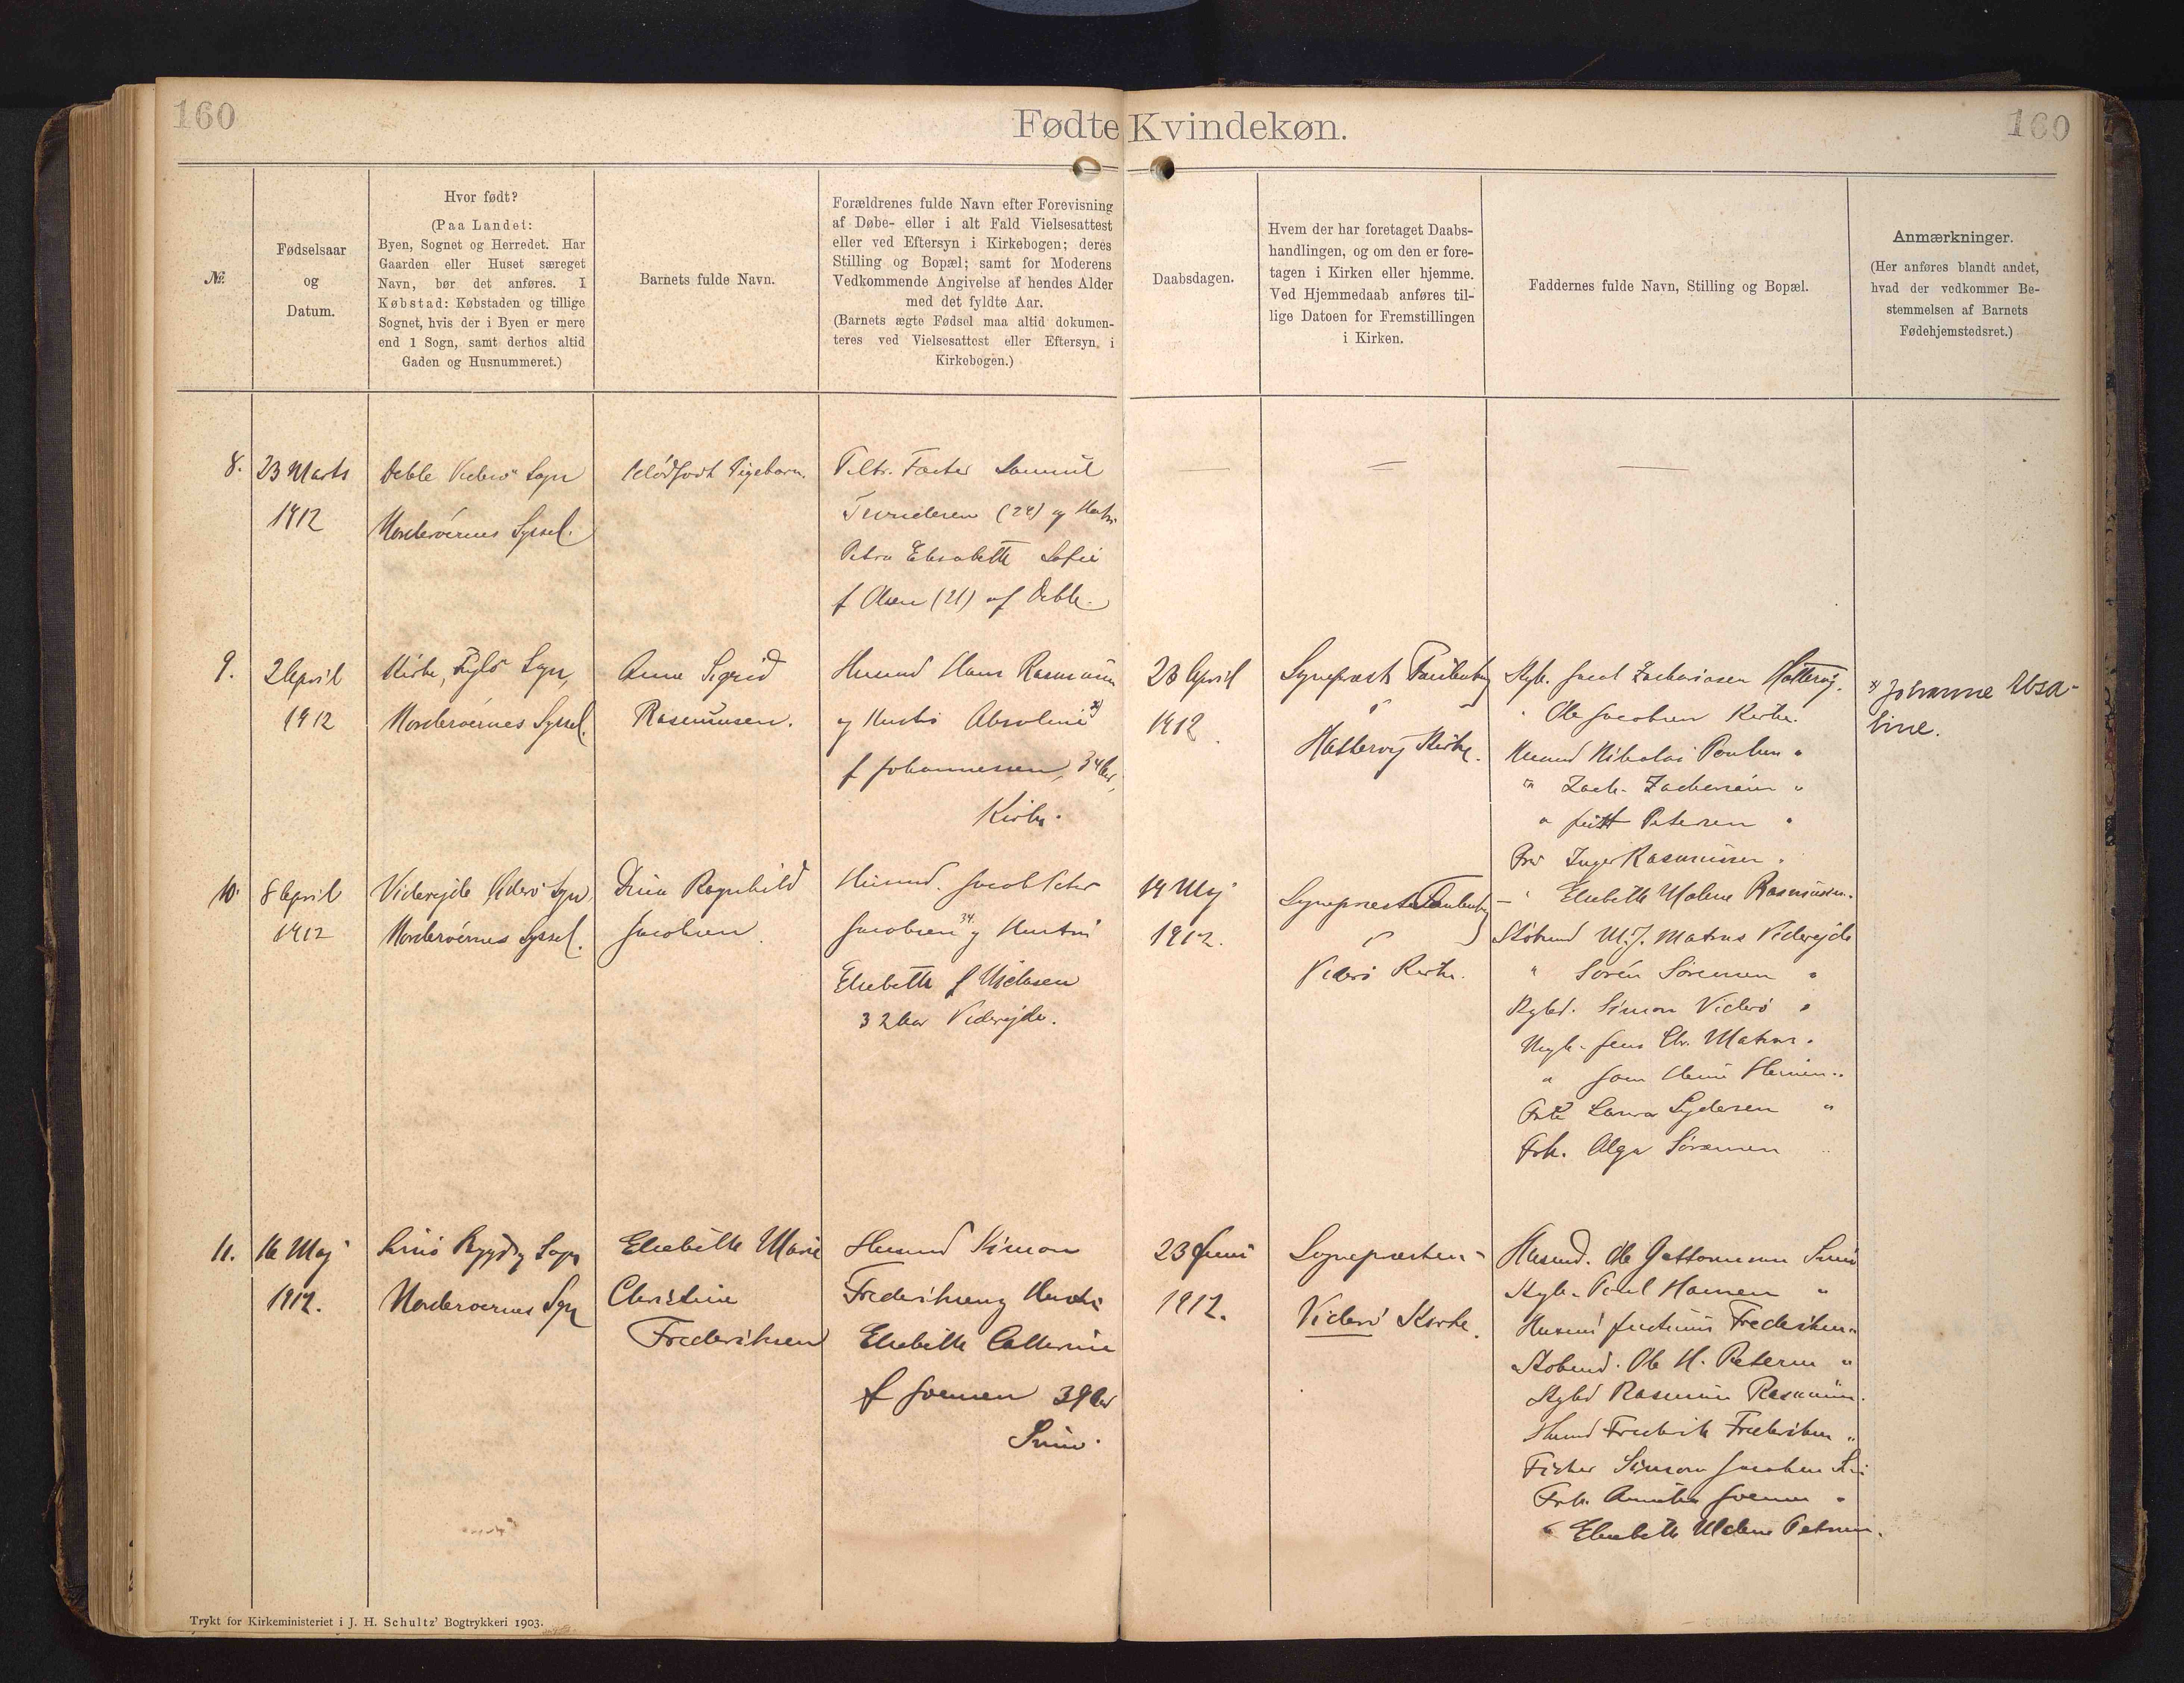 160
Fødte Kvindekøn.
160
№.
Fødselsaar
og
Datum.
Hvor født?
(Paa Landet:
Byen, Sognet og Herredet. Har
Gaarden eller Huset særeget
Navn, bør det anføres. I
Købstad: Købstaden og tillige
Sognet, hvis der i Byen er mere
end 1 Sogn, samt derhos altid
Gaden og Husnummeret.)
Barnets fulde Navn.
Forældrenes fulde Navn efter Forevisning
af Døbe- eller i alt Fald Vielsesattest
eller ved Eftersyn i Kirkebogen; deres
Stilling og Bopæl; samt for Moderens
Vedkommende Angivelse af hendes Alder
med det fyldte Aar.
(Barnets ægte Fødsel maa altid dokumen-
teres ved Vielsesattest eller Eftersyn i
Kirkebogen.)
Daabsdagen.
Hvem der har foretaget Daabs-
handlingen, og om den er fore-
tagen i Kirken eller hjemme.
Ved Hjemmedaab anføres til-
lige Datoen for Fremstillingen
i Kirken.
Faddernes fulde Navn, Stilling og Bopæl.
Anmærkninger.
(Her anføres blandt andet,
hvad der vedkommer Be-
stemmelsen af Barnets
Fødehjemstedsret.)
8.
23 Marts
1912
Deble Viderø Sogn
Norderøernes Syssel.
dødfødt Pigebarn.
Samuel
(24) og
Petra Elisabeth Sofie
f Olsen (21) af Deble.
9.
2 April
1912
Kirke, Fuglø Sogn,
Norderøernes Syssel.
Anna Sigrid
Rasmussen.
Husmd Hans Rasmussen
og Hustru Absoline x)
f Johannessen, 34 Aar,
Kirke.
28 April
1912.
Sognepræst
Hattervig Kirke.
Jacob Zachariasen Hattervig.
" Ole Jacobsen Kirke.
Husmd Nikolai Poulsen "
" Zach. Zachariasen "
" Petersen "
Fru Inger Rasmussen "
" Elsebeth Malene Rasmussen.
x) Johanne Absa-
line.
10.
8 April
1912
Viderejde Viderø Sogn,
Norderøernes Syssel.
Ragnhild
Jacobsen.
Husmd. Jacob Peter
Jacobsen 34 og Hustru
Elsebeth f Nielasen
32 Aar Viderejde.
14 Maj
1912.
Sognepræsten
Viderø Kirke.
M. J. Matras Viderejde
" Sören Sörensen "
Simon Viderø "
Jens Chr. Matras "
"
Laura Lydersen "
Frk. Olga Sørensen "
11.
16 Maj
1912.
Svinø Sogn
Norderøernes
Elsebeth Marie
Christine
Frederiksen
Husmd Simon
Frederiksen og Hustru
Elsebeth Catherine
f Joensen 39 Aar
Svinø.
23 Juni
1912.
Sognepræsten -
Viderø Kirke.
Husmd. Ole
Poul Hansen "
Frederiksen "
Ole H. Petersen "
Rasmus Rasmussen.
Husmd Frederik Frederiksen "
Fisker Simon Jacobsen
Frk. Joensen "
" Elsebeth Malene Petersen.
Trykt for Kirkeministeriet i J. H. Schultz' Bogtrykkeri 1903.